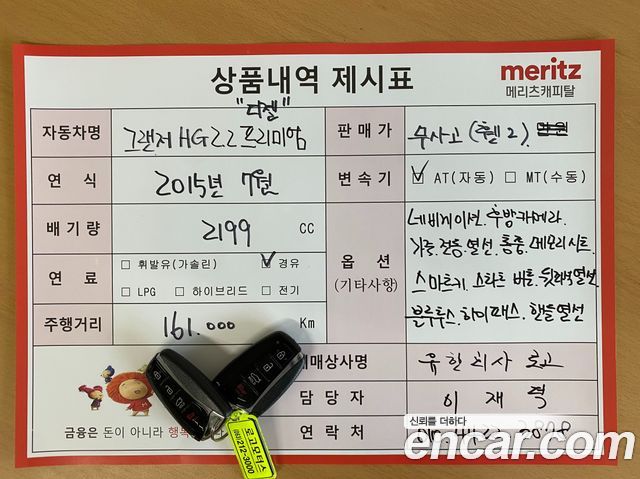 상품내역 제시표
meritz
메리츠캐피탈
"디젤"
자동차명 그랜저 HG 2.2 프리미엄
판매가 무사고 (휀2) 만원
연 식 2015년 7월
변속기 ☑ AT(자동) ☐ MT(수동)
배기량 2199 CC
옵 션
(기타사항)
네비게이션. 후방카메라.
가죽. 전동. 열선. 통풍. 메모리시트.
스마트키. 스타트 버튼. 뒷좌석열선.
블루투스. 하이패스. 핸들열선
연 료 ☐ 휘발유(가솔린) ☑ 경유
☐ LPG ☐ 하이브리드 ☐ 전기
주행거리 161.000 Km
매매상사명 유한회사 로고
담 당 자 이 재
연 락 처
금융은 돈이 아니라 행복
로고모터스
212-3000
신뢰를 더하다
encar.com